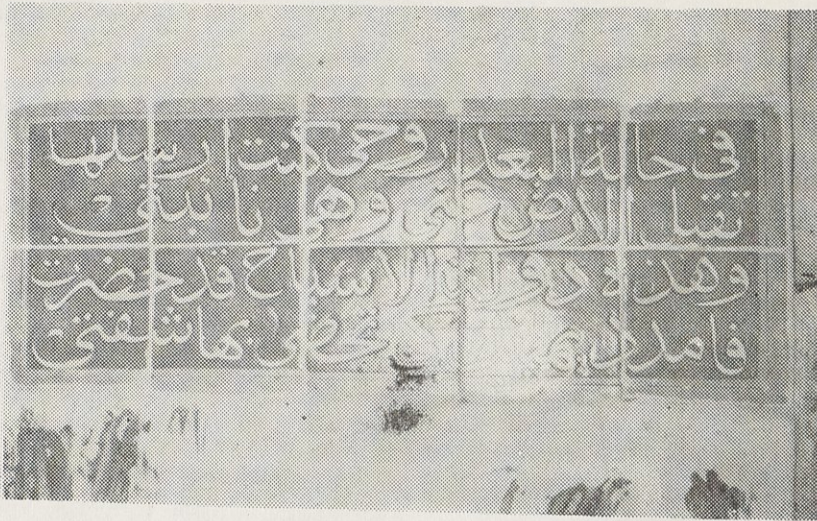 فى حالة البعد روحى كنت ارسلها
تقبل الارض عنى وهى نائبتى
وهذه دولة الاشباح قد حضرت
فامدد يمينك كى تحظى بها شفتى